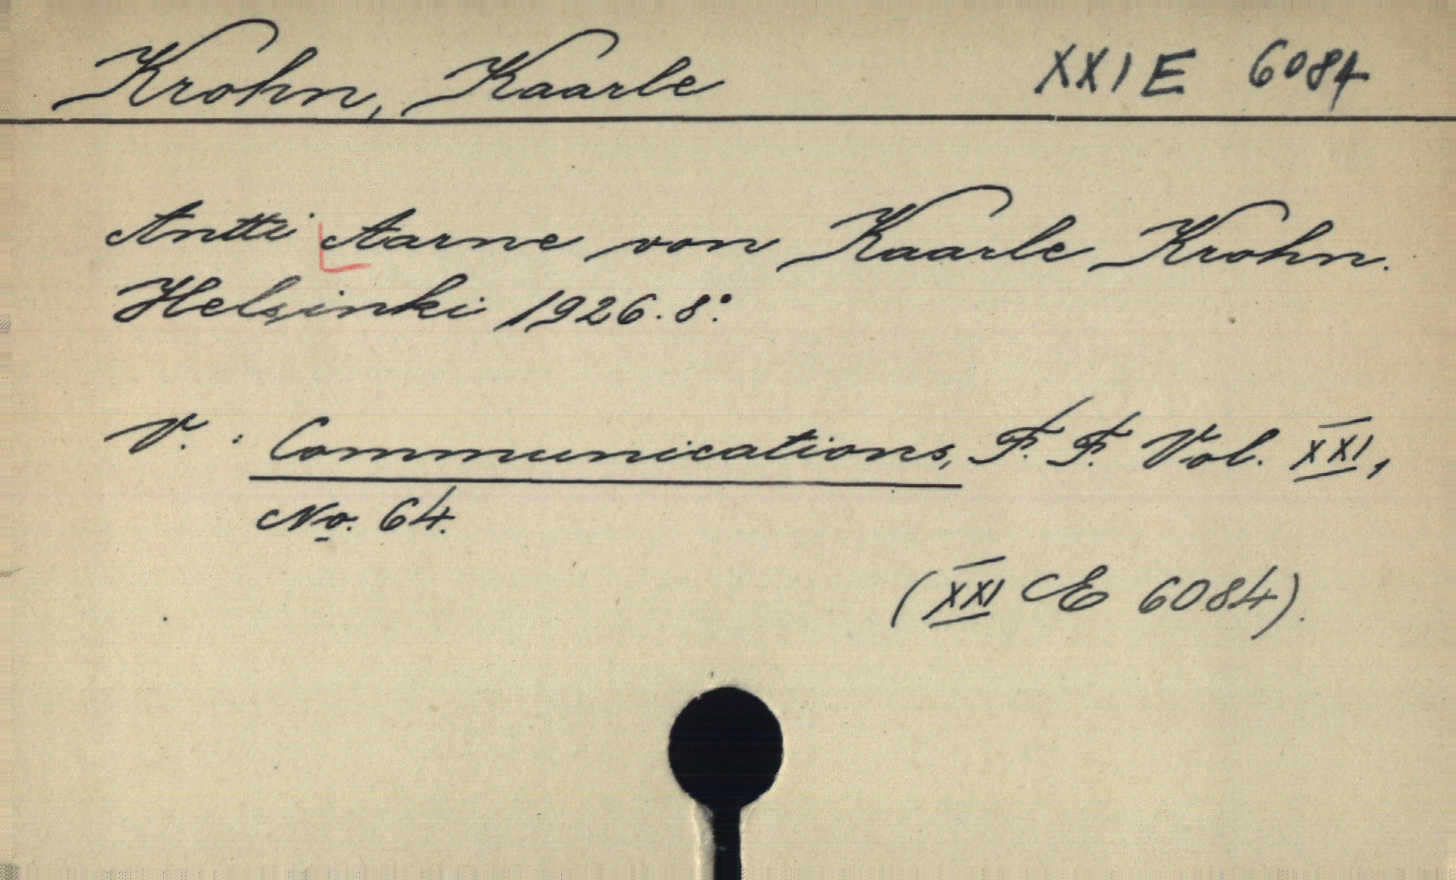 Krohn, Kaarle XXI E 6084
Antti Aarne von Kaarle Krohn.
Helsinki 1926. 8°.
V.: Communications, F. F. Vol. XXI,
No. 64.
(XXI E 6084).